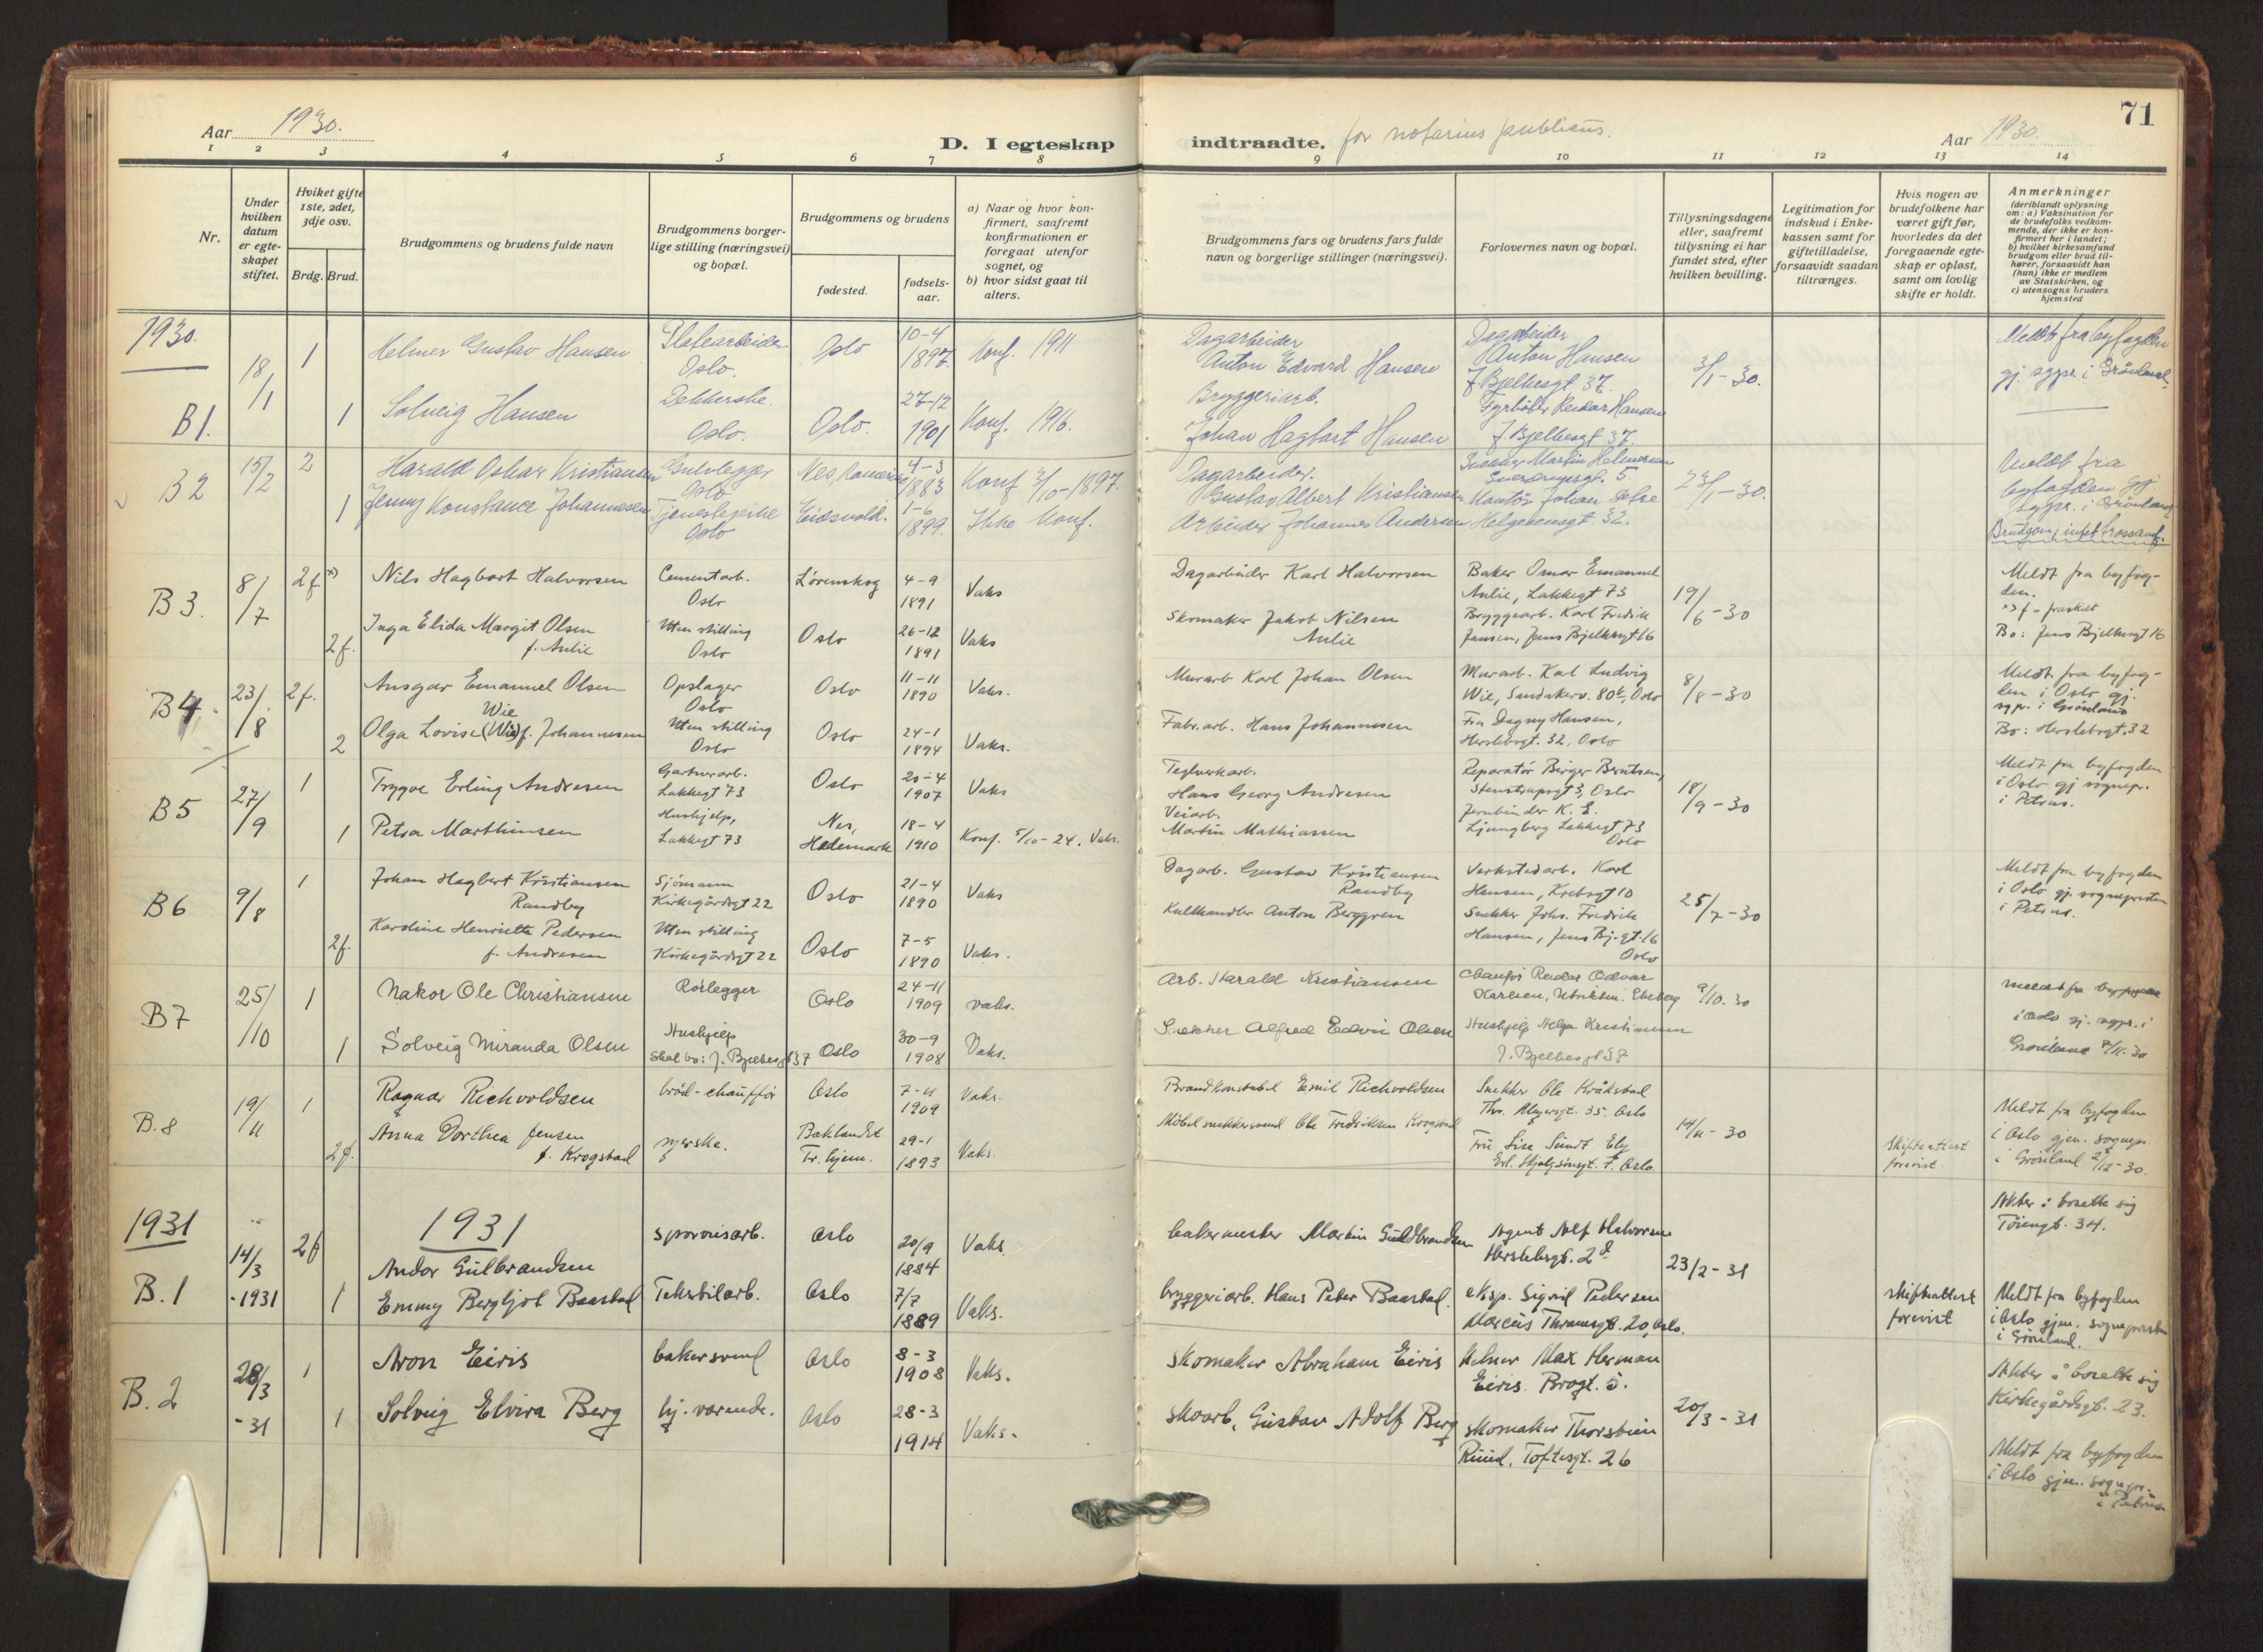 71
Aar 1930.
D. I egteskap indtraadte. for notarius publicus.
Aar 1930.
1 2 3 4 5 6 7 8 9 10 11 12 13 14
Nr.
Under hvilken datum er egte- skapet stiftet.
Hviket gifte 1ste, 2det, 3dje osv.
Brdg. Brud.
Brudgommens og brudens fulde navn
Brudgommens borger- lige stilling (næringsvei) og bopæl.
Brudgommens og brudens
fødested.
fødsels- aar.
a) Naar og hvor kon- firmert, saafremt konfirmationen er foregaat utenfor sognet, og
b) hvor sidst gaat til alters.
Brudgommens fars og brudens fars fulde navn og borgerlige stillinger (næringsvei).
Forlovernes navn og bopæl.
Tillysningsdagene eller, saafremt tillysning ei har fundet sted, efter hvilken bevilling.
Legitimation for indskud i Enke- kassen samt for giftetilladelse, forsaavidt saadan tiltrænges.
Hvis nogen av brudefolkene har været gift før, hvorledes da det foregaaende egte- skap er opløst, samt om lovlig skifte er holdt.
Anmerkninger (deriblandt oplysning om: a) Vaksination for de brudefolks vedkom- mende, der ikke er kon- firmert her i landet; b) hvilket kirkesamfund brudgom eller brud til- hører, forsaavidt han (hun) ikke er medlem av Statskirken, og c) utensogns bruders hjemsted
1930.
B1. 18/1 1 Helmer Gustav Hansen Platearbeider Oslo. Oslo 10-4 1897. Konf. 1911 Dagarbeider Anton Edvard Hansen Dagarbeider Anton Hansen J. Bjelkesgt 37. 3/1-30. Meldt fra byfogden gj. sgpr. i Grønland
1 Solveig Hansen Oslo. Oslo. 27-12 1901 Konf. 1916. Bryggeriarb. Johan Hagbart Hansen Fyrbøter Reidar Hansen J. Bjelkesgt 37.
B2 15/2 2 Harald Oskar Kristiansen Gulvlegger Oslo Nes, Romerike 4-3 1883 Konf 3/10-1897. Dagarbeider. Gustav Albert Kristiansen Martin Helmersen 5. 23/1-30. Meldt fra byfogden gj sgpr. i Grønland
1 Jenny Konstance Johannesen Tjenestepike Oslo Eidsvold. 1-6 1899. Ikke Konf. Arbeider Johannes Andersen Johan Helgesensgt. 32. Brudgom, intet trossamf.
B3. 8/7 2f x) Nils Hagbart Halvorsen Cementarb. Oslo Lørenskog 4-9 1891 Vaks Dagarbeider Karl Halvorsen Baker Omar Emanuel Aulie, Lakkegt 73 19/6-30 Meldt fra byfog- den. x) f = fraskilt
2f. Inga Elida Margit Olsen f. Aulie Uten stilling Oslo Oslo 26-12 1891 Vaks Skomaker Jakob Nilsen Aulie Bryggearb. Karl Fredrik Jansen, Jens Bjelkesgt 16 Bo: Jens Bjelkesgt 16
B4. 23/8 2f. Ansgar Emanuel Olsen Wie Opslager Oslo Oslo 11-11 1890 Vaks. Murarb Karl Johan Olsen Murarb. Karl Ludvig Wie, Sandakerv. 80b, Oslo 8/8-30 Meldt fra byfog- den i Oslo gj. sgpr. i Grønland
2 Olga Lovise (Wie) f. Johannesen Uten stilling Oslo Oslo 24-1 1894 Vaks. Fabr.arb. Hans Johannesen Fru Dagny Hansen, Herslebsgt. 32, Oslo Bo: Herslebsgt. 32
B5 27/9 1 Trygve Erling Andresen Gartnerarb. Lakkegt 73 Oslo 20-4 1907 Vaks Teglverkarb. Hans Georg Andresen Reparatør Birger Berntsen, Stenstrupsgt 3, Oslo 18/9-30 Meldt fra byfogden i Oslo gj sognepr. i Petrus.
1 Petra Marthinsen Hushjelp, Lakkegt 73 Nes, Hedemark 18-4 1910 Konf. 5/10-24. Vaks. Veiarb. Martin Mathiassen Jernbinder K. E. Ljungberg Lakkegt 73 Oslo
B6 9/8 1 Johan Hagbert Kristiansen Randby Sjømann Kirkegårdsgt 22 Oslo 21-4 1890 Vaks Dagarb. Gustav Kristiansen Randby Verkstedarb. Karl Hansen, Krebsgt 10 25/7-30 Meldt fra byfogden i Oslo gj. sognepresten i Petrus.
2f. Karoline Henriette Pedersen f. Andresen Uten stilling Kirkegårdsgt 22 Oslo 7-5 1890 Vaks. Kullhandler Anton Berggren Snekker Johs. Fredrik Hansen, Jens Bj.gt. 16 Oslo
B7 25/10 1 Nakor Ole Christiansen Rørlegger Oslo 24-11 1909 vaks. Arb. Harald Kristiansen Chauffør Reidar Odvar Karlsen, Ekeberg 9/10. 30 meldt fra byfogden i Oslo gj. sgpr. i Grønland 8/11.30
1 Solveig Miranda Olsen Hushjelp Skal bo: J. Bjelkesgt 37 Oslo 30-9 1908 Vaks. Snekker Alfred Edvin Olsen Hushjelp Helga Kristiansen J. Bjelkesgt 37
B.8 19/11 1 Ragnar Richvoldsen brød-chauffør Oslo 7-11 1909 Vaks. Brandkonstabel Emil Richvoldsen Snekker Ole Kråkstad Thv. Meyersgt. 35. Oslo 14/11-30 Meldt fra byfogden i Oslo gjen. sognepr. i Grønland 2/12-30.
2f. Anna Dorthea Jensen f. Krogstad syerske. Baklandet Tr.hjem. 29-1 1893 Vaks. Møbelsnekkersvend Ole Fredriksen Krogstad Fru Lise Sundt Ely Erl. Skjalgsønsgt. 7. Oslo skifteattest forevist.
1931 1931
B.1 14/3 -1931 2f Andor Gulbrandsen sporveisarb. Oslo 20/9 1884 Vaks. bakermester Martin Guldbrandsen Agent Alf Halvorsen Herslebsgt. 2d 23/2-31 Akter å bosette sig Tøiengt. 34.
1 Emmy Bergljot Baastad Tekstilarb. Oslo 7/7 1889 Vaks. bryggeriarb. Hans Peter Baastad. eksp. Sigrid Pedersen Marcus Thranesgt. 20, Oslo. skifteattest forevist Meldt fra byfogden i Oslo gjen. sognepresten i Grønland.
B.2 28/3 -31 1 Aron Eiris bakersvend Oslo 8-3 1908 Vaks. skomaker Abraham Eiris Kelner Max Herman Eiris. Brogt. 5. 20/3-31 Akter å bosette sig Kirkegårdsgt. 23.
1 Solveig Elvira Berg hj.værende. Oslo 28-3 1914 Vaks. skoarb. Gustav Adolf Berg skomaker Thorstein Ruud. Toftesgt. 26 Meldt fra byfogden i Oslo gjen. sognepr. i Petrus